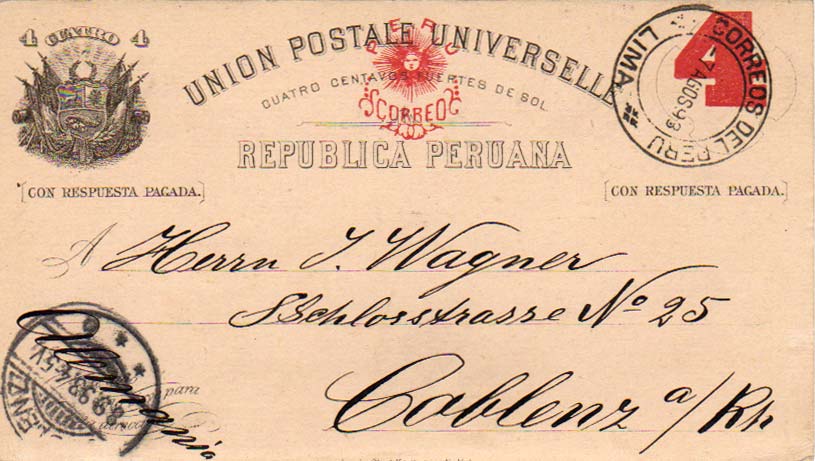 4 CUATRO 4
UNION POSTALE UNIVERSELLE
PERU
CUATRO CENTAVOS FUERTES DE SOL.
CORREOS
REPUBLICA PERUANA
4
CORREOS DEL PERU
LIMA
7 AGOS 93
[CON RESPUESTA PAGADA.]
[CON RESPUESTA PAGADA.]
A Herrn J. Wagner
Schlosstrasse No 25
Coblenz a/Rh
Alemania
para
8.9.93.4-5V.